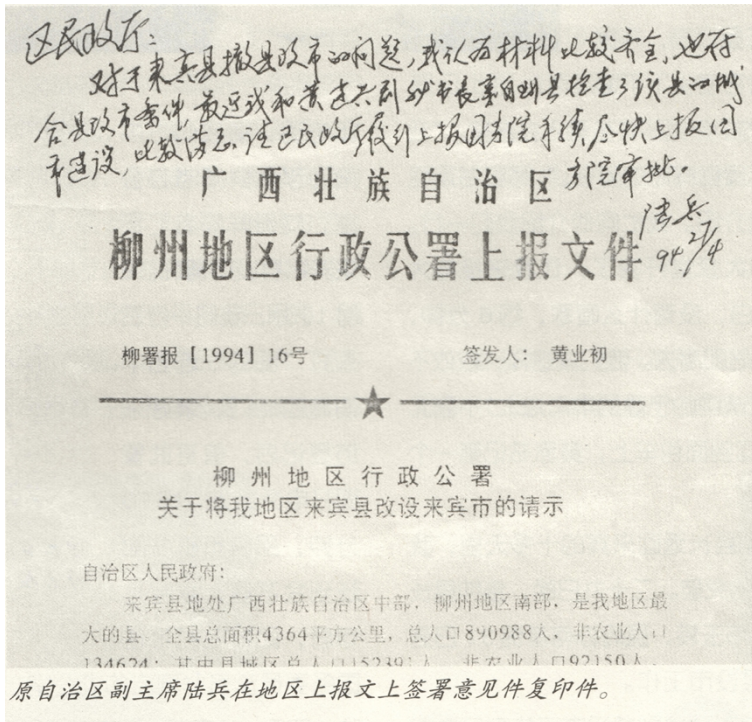 区民政厅：
对于来宾县撤县改市的问题，我认为材料比较齐全，也符
合县改市条件，最近我和黄道兴副秘书长亲自到县检查了该县的城
市建设，比较满意。请区民政厅履行上报国务院手续，尽快上报国
务院审批。
陆兵
94.27/4
广西壮族自治区
柳州地区行政公署上报文件
柳署报［1994］16号 签发人：黄业初
柳州地区行政公署
关于将我地区来宾县改设来宾市的请示
自治区人民政府：
来宾县地处广西壮族自治区中部，柳州地区南部，是我地区最
大的县。全县总面积4364平方公里，总人口890988人，非农业人口
134624；其中县城区总人口152391人，非农业人92150人，
原自治区副主席陆兵在地区上报文上签署意见件复印件。